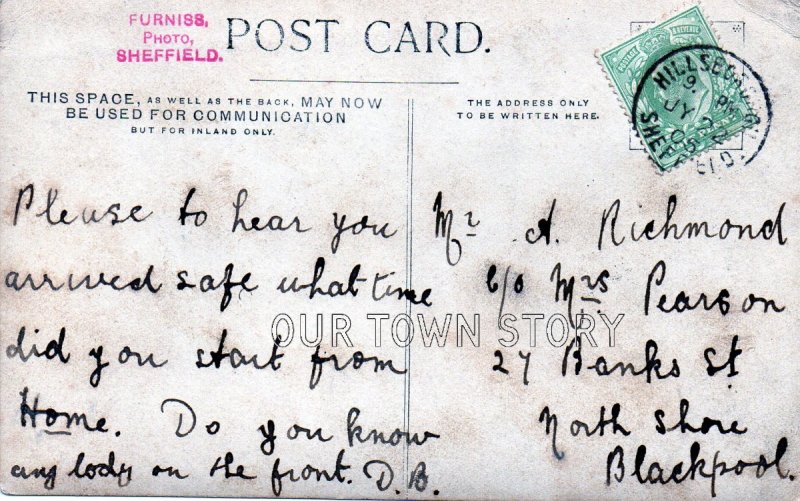 FURNISS,
PHOTO,
SHEFFIELD.
POST CARD.
THIS SPACE, AS WELL AS THE BACK, MAY NOW
BE USED FOR COMMUNICATION
BUT FOR INLAND ONLY.
THE ADDRESS ONLY
TO BE WRITTEN HERE.
POSTAGE & REVENUE
Please to hear you
arrived safe what time
did you start from
Home. Do you know
any body on the front. D.B.
Mr A. Richmond
C/O Mrs Pearson
27 Banks St
North Shore
Blackpool.
OUR TOWN STORY